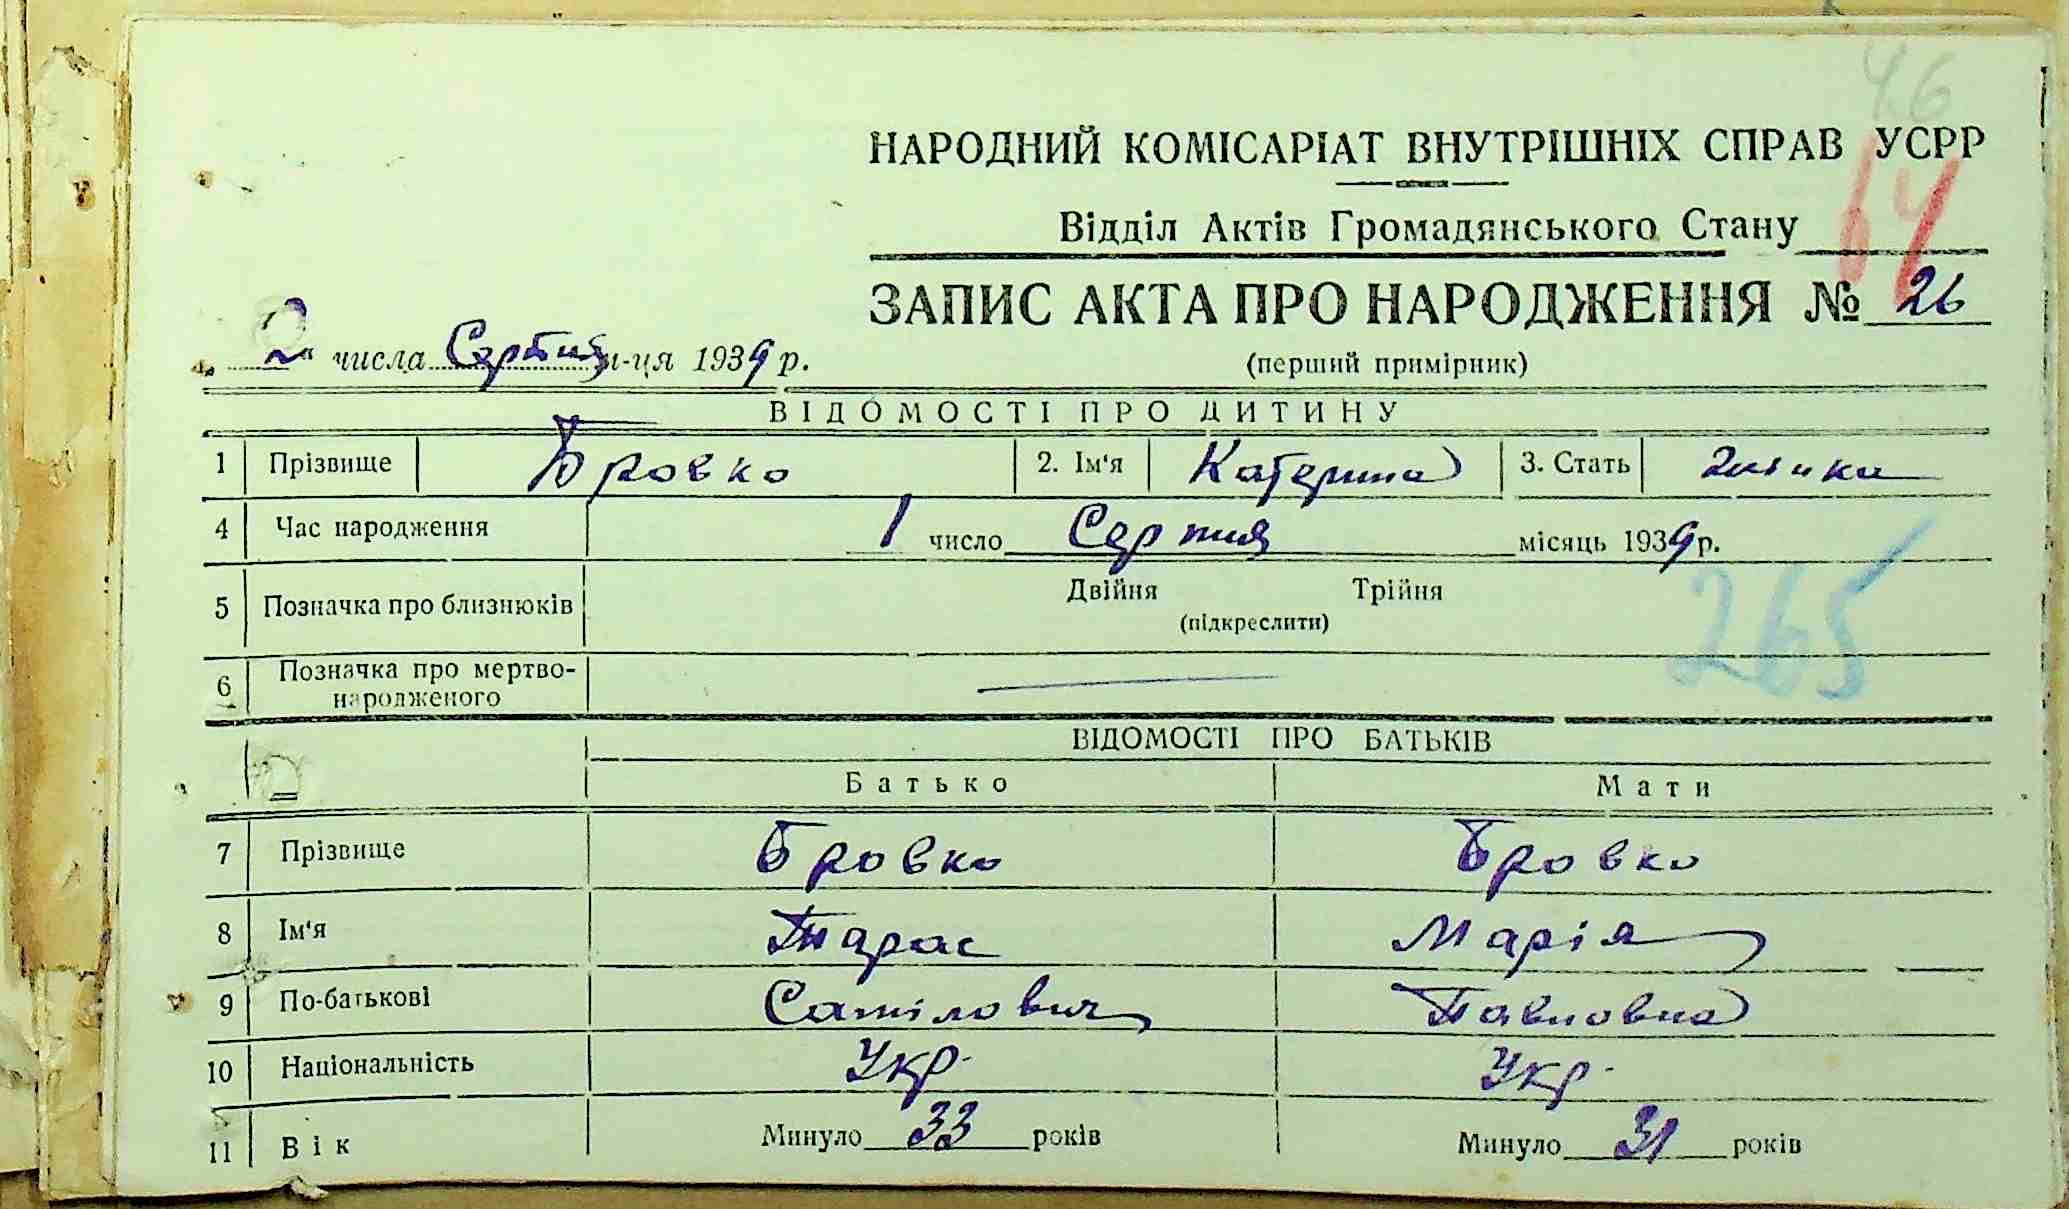 46
НАРОДНИЙ КОМІСАРІАТ ВНУТРІШНІХ СПРАВ УСРР
64
Відділ Актів Громадянського Стану
ЗАПИС АКТА ПРО НАРОДЖЕННЯ № 26
„2“ числа Серпня м-ця 1939 р.
(перший примірник)
ВІДОМОСТІ ПРО ДИТИНУ
1 Прізвище Бровко 2. Ім'я Катерина 3. Стать
4 Час народження 1 число Серпня місяць 1939 р.
5 Позначка про близнюків Двійня Трійня
(підкреслити)
265
6 Позначка про мертво-
народженого
ВІДОМОСТІ ПРО БАТЬКІВ
Батько Мати
7 Прізвище Бровко Бровко
8 Ім'я Тарас Марія
9 По-батькові Павловна
10 Національність Укр. Укр.
11 Вік Минуло 33 років Минуло 31 років